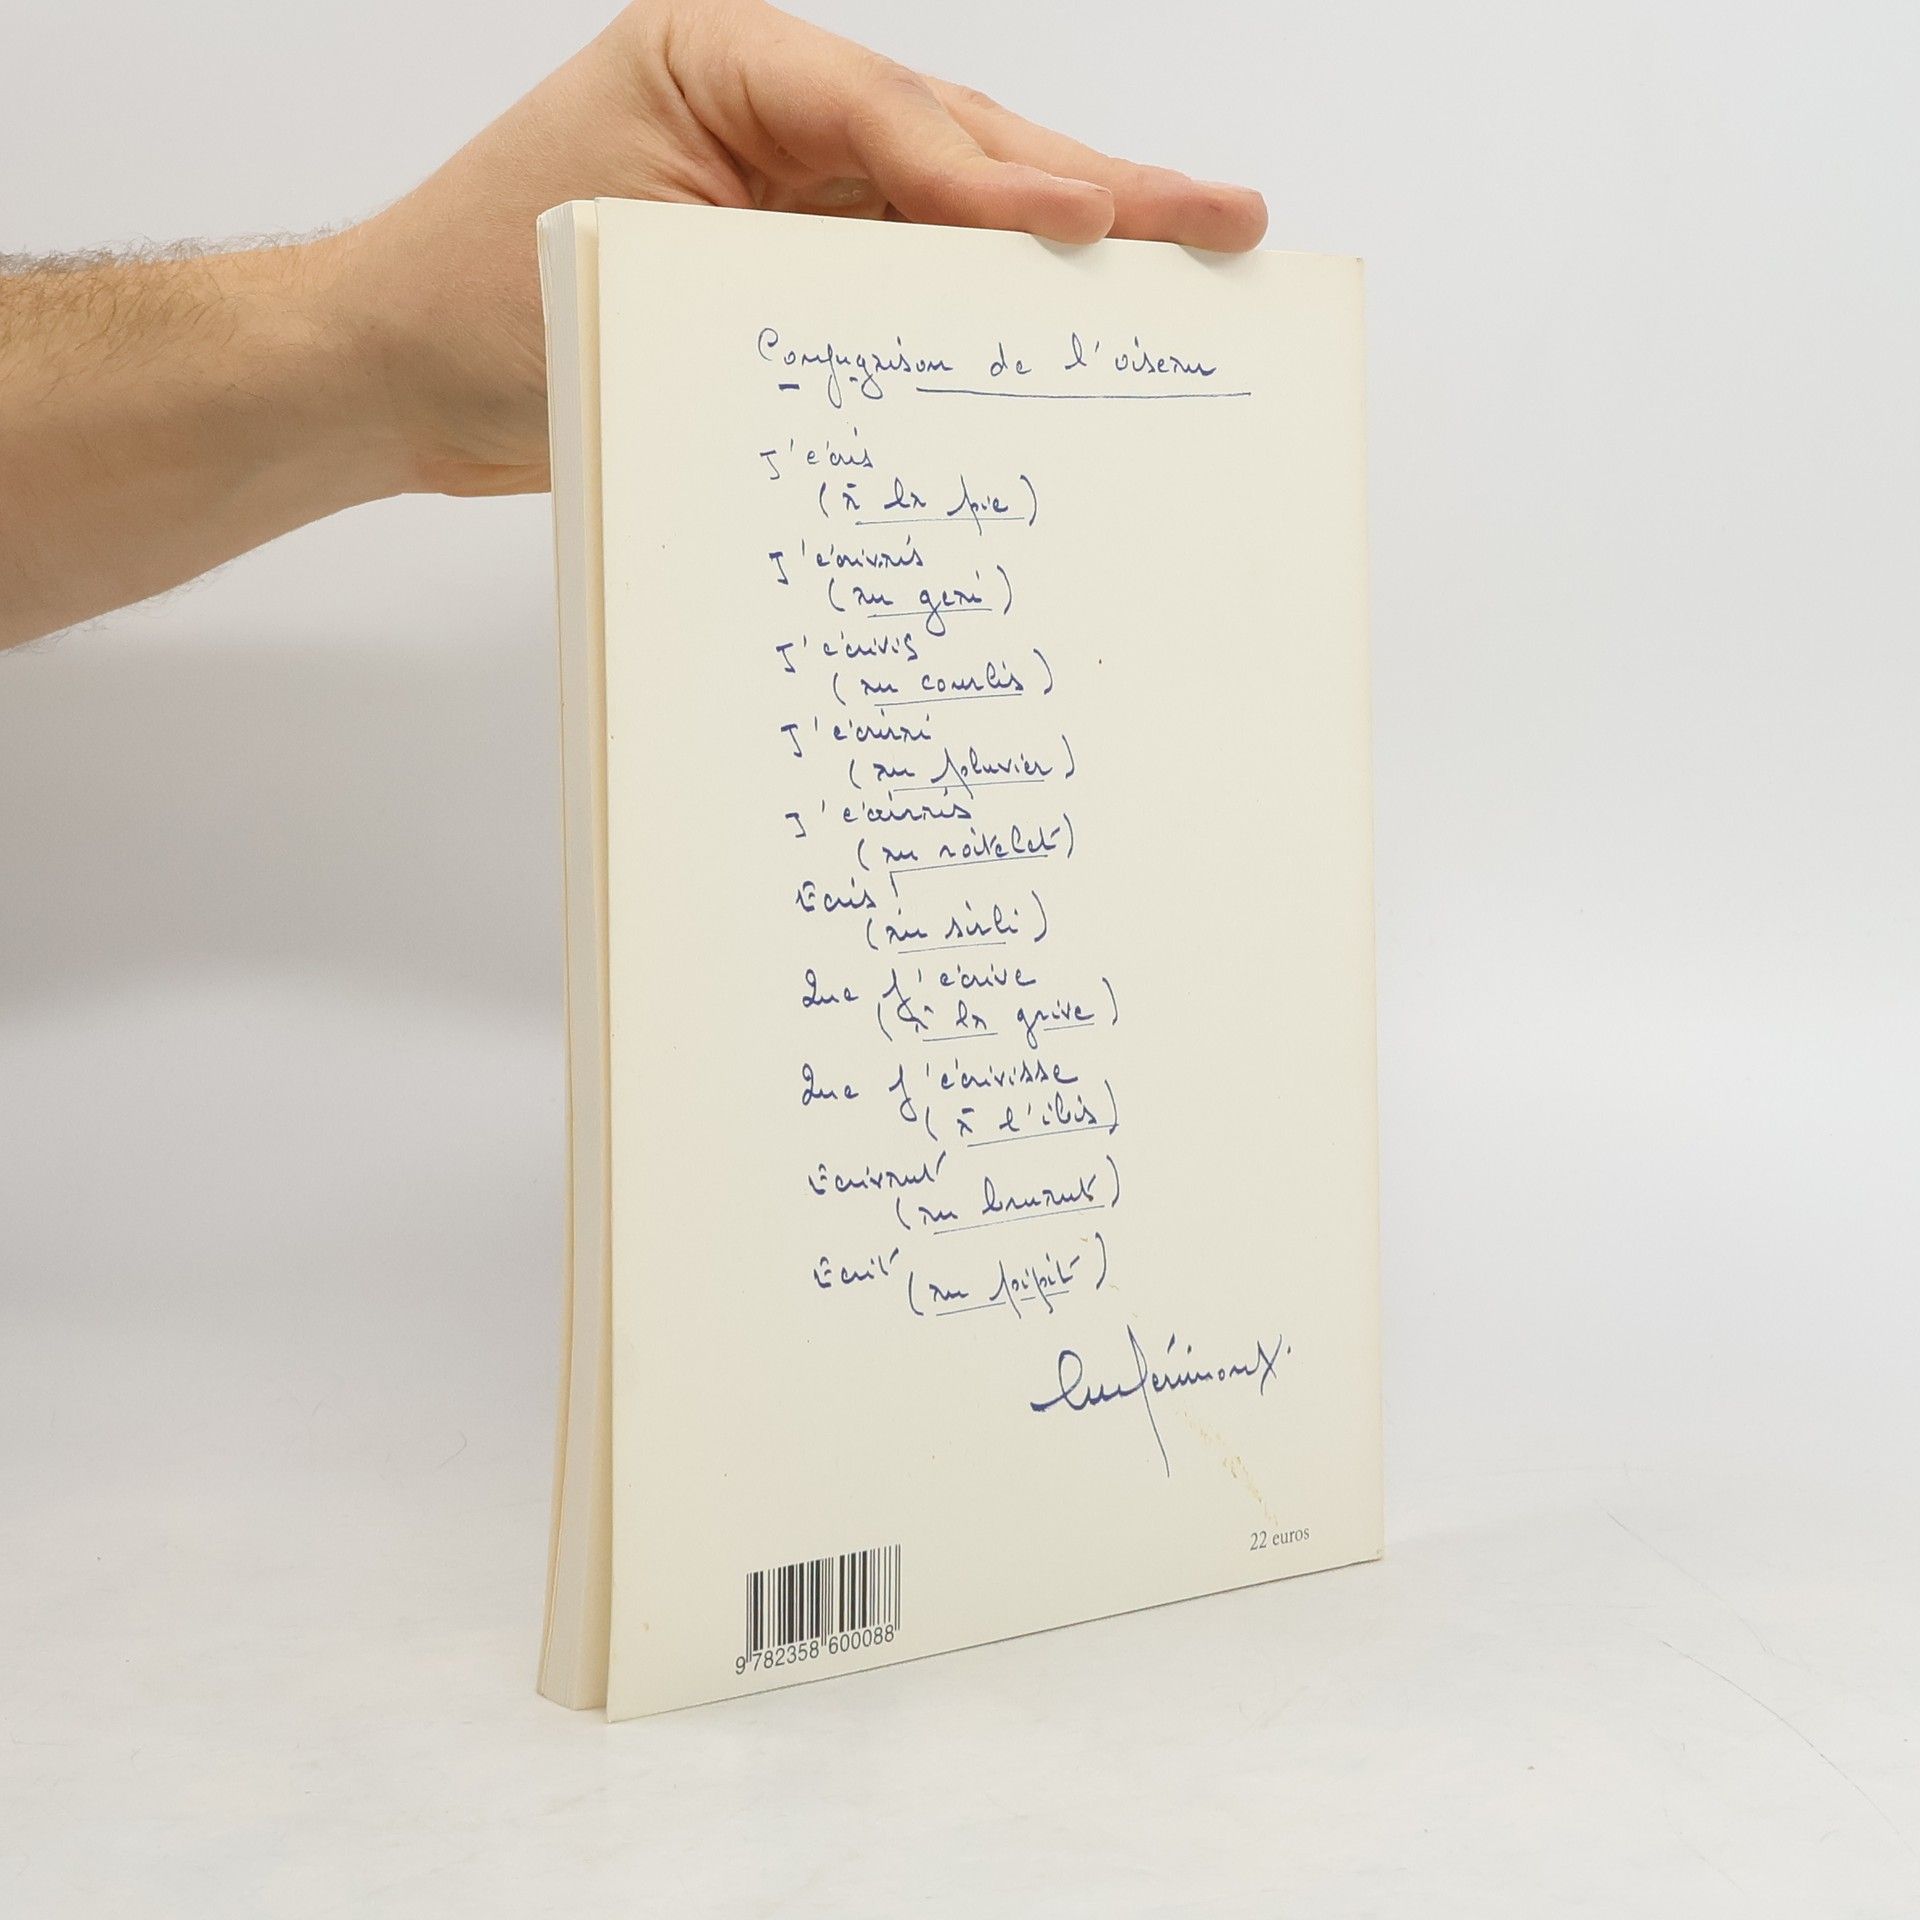 Conjugaison de l'oiseau
J'écris
(à la pie)
J'écrivais
(au geai)
J'écrivis
(au courlis)
J'écrirai
(au pluvier)
J'écrirais
(au roitelet)
Écris
(au sirli)
Que j'écrive
(à la grive)
Que j'écrivisse
(à l'ibis)
Écrivant
(au bruant)
Écrit
(au pipit)
Luc Bérimont.
22 euros
9 782358 600088